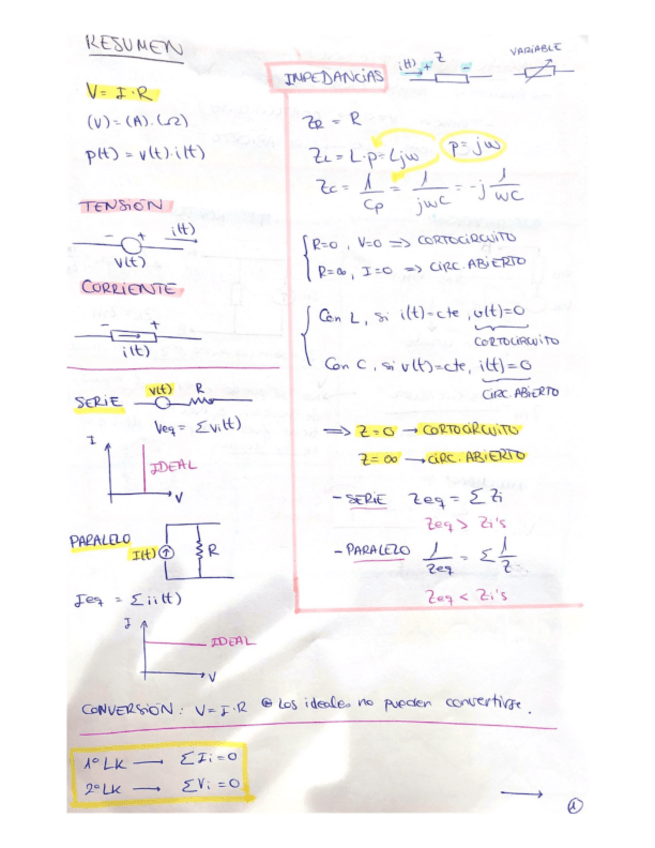 RESUMEN
V = I · R
(V) = (A) · (Ω)
p(t) = v(t) · i(t)
TENSIÓN
- + i(t)
v(t)
CORRIENTE
- +
i(t)
SERIE v(t) R
Veq = Σvi(t)
I
IDEAL
V
PARALELO
I(t) R
Ieq = Σii(t)
I
IDEAL
V
IMPEDANCIAS
i(t) + Z -
VARIABLE
ZR = R
ZL = L·p = Ljω p = jω
Zc = 1/Cp = 1/jωC = -j 1/ωC
R=0, V=0 => CORTOCIRCUITO
R=∞, I=0 => CIRC. ABIERTO
Con L, si i(t)=cte, v(t)=0
CORTOCIRCUITO
Con C, si v(t)=cte, i(t)=0
CIRC. ABIERTO
=> Z=0 → CORTOCIRCUITO
Z=∞ → CIRC. ABIERTO
- SERIE Zeq = Σ Zi
Zeq > Zi's
- PARALELO 1/Zeq = Σ 1/Z
Zeq < Zi's
CONVERSIÓN: V = I · R Los ideales no pueden convertirse.
1º LK → Σ Ii = 0
2º LK → Σ Vi = 0
→ 1